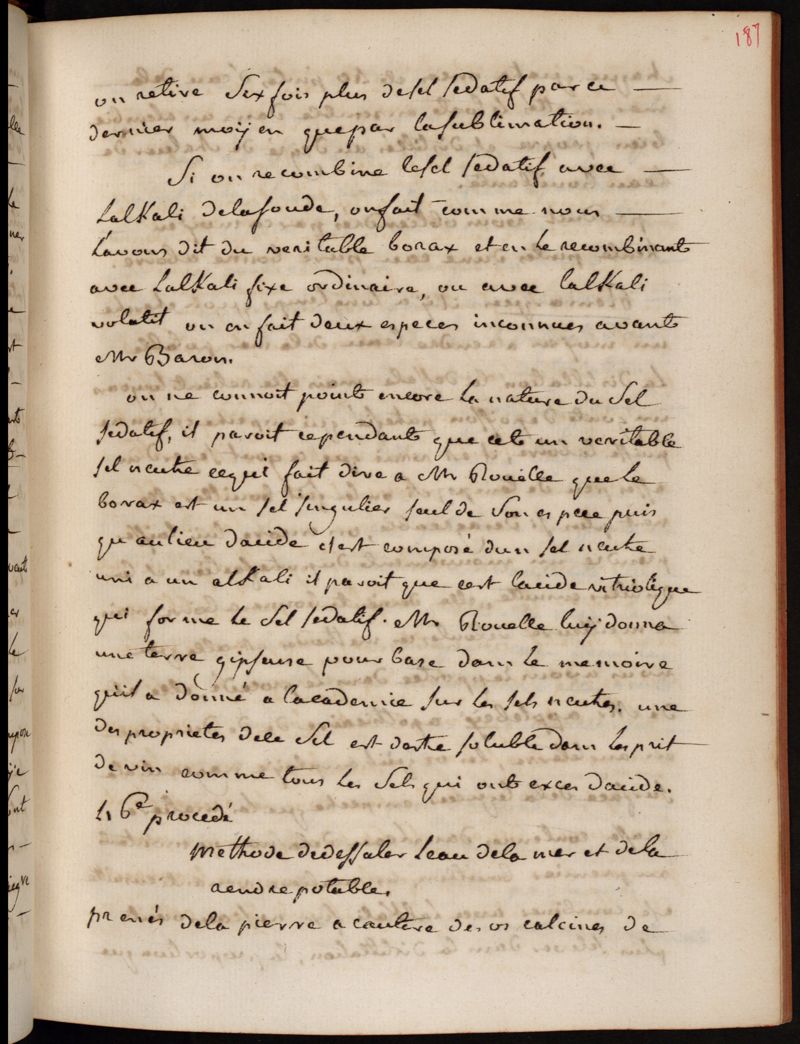 187
on retire Six fois plus de sel sedatif par ce
dernier moÿen que par la sublimation.
Si on recombine le sel sedatif avec
Lalkali de la soude, on fait comme nous
Lavons dit du veritable borax et en le recombinant
avec Lalkali fixe ordinaire, ou avec lalkali
volatil on en fait deux especes inconnues avant
Mr Baron.
on ne connoit point encore La nature du Sel
sedatif, il paroit cependant que cet un veritable
sel neutre ce qui fait dire a Mr Rouelle que le
borax est un sel singulier seul de Son espece puis
qu'aulieu dacide c'est composé dun sel neutre
uni a un alkali il paroit que cest lacide vitriolique
qui forme le Sel sedatif. Mr Rouelle luÿ donna
une terre gipseuse pour base dans Le memoire
quil a donné a lacademie sur Les sels neutres. une
des proprietes de ce Sel est destre soluble dans lesprit
de vin comme tous Les Sels qui ont exces dacide.
46e procedé
Methode de dessaler Leau de la mer et de la
rendre potable.
prenés de la pierre a cautere des os calcines de